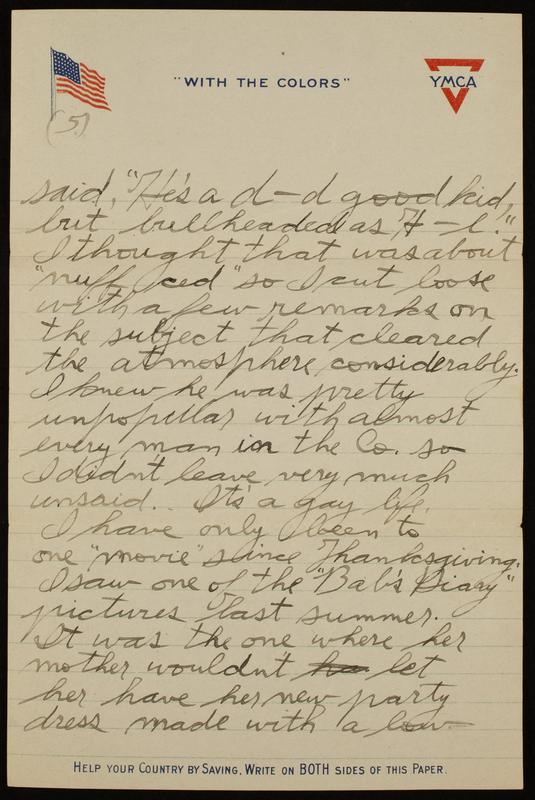 "WITH THE COLORS"
YMCA
(5)
said, "He's a d-d good kid,
but bullheaded as H-l."
I thought that was about
"nuff ced" so I cut loose
with a few remarks on
the subject that cleared
the atmosphere considerably.
I knew he was pretty
unpopular with almost
every man in the Co. so
I didn't leave very much
unsaid. It's a gay life.
I have only been to
one "movie" since Thanksgiving.
I saw one of the "Bab's Diary"
pictures last summer.
It was the one where her
mother wouldn't he let
her have her new party
dress made with a low-
HELP YOUR COUNTRY BY SAVING, WRITE ON BOTH SIDES OF THIS PAPER.